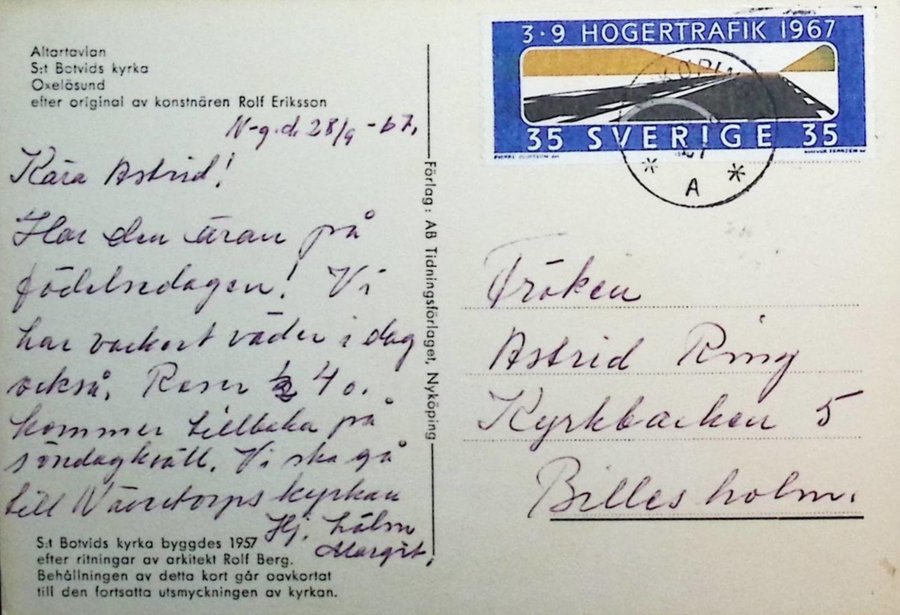 Altartavlan
S:t Botvids kyrka
Oxelösund
efter original av konstnären Rolf Eriksson
N-g. d. 28/9 -67.
Kära Astrid!
Har den äran på
födelsedagen! Vi
har vackert väder i dag
också. Reser 4 o.
kommer tillbaka på
söndagkväll. Vi ska gå
till kyrkan
Hj. hälsn
Margit.
S:t Botvids kyrka byggdes 1957
efter ritningar av arkitekt Rolf Berg.
Behållningen av detta kort går oavkortat
till den fortsatta utsmyckningen av kyrkan.
Förlag: AB Tidningsförlaget, Nyköping
3·9 HÖGERTRAFIK 1967
35 SVERIGE 35
A
Fröken
Astrid Ring
Kyrkbacken 5
Billesholm.